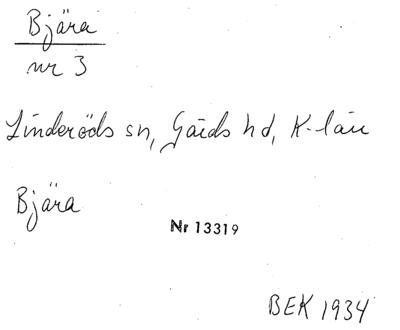 Bjära
nr 3
Linderöds sn, Gärds hd, K-län
Bjära
Nr 13319
BEK 1934